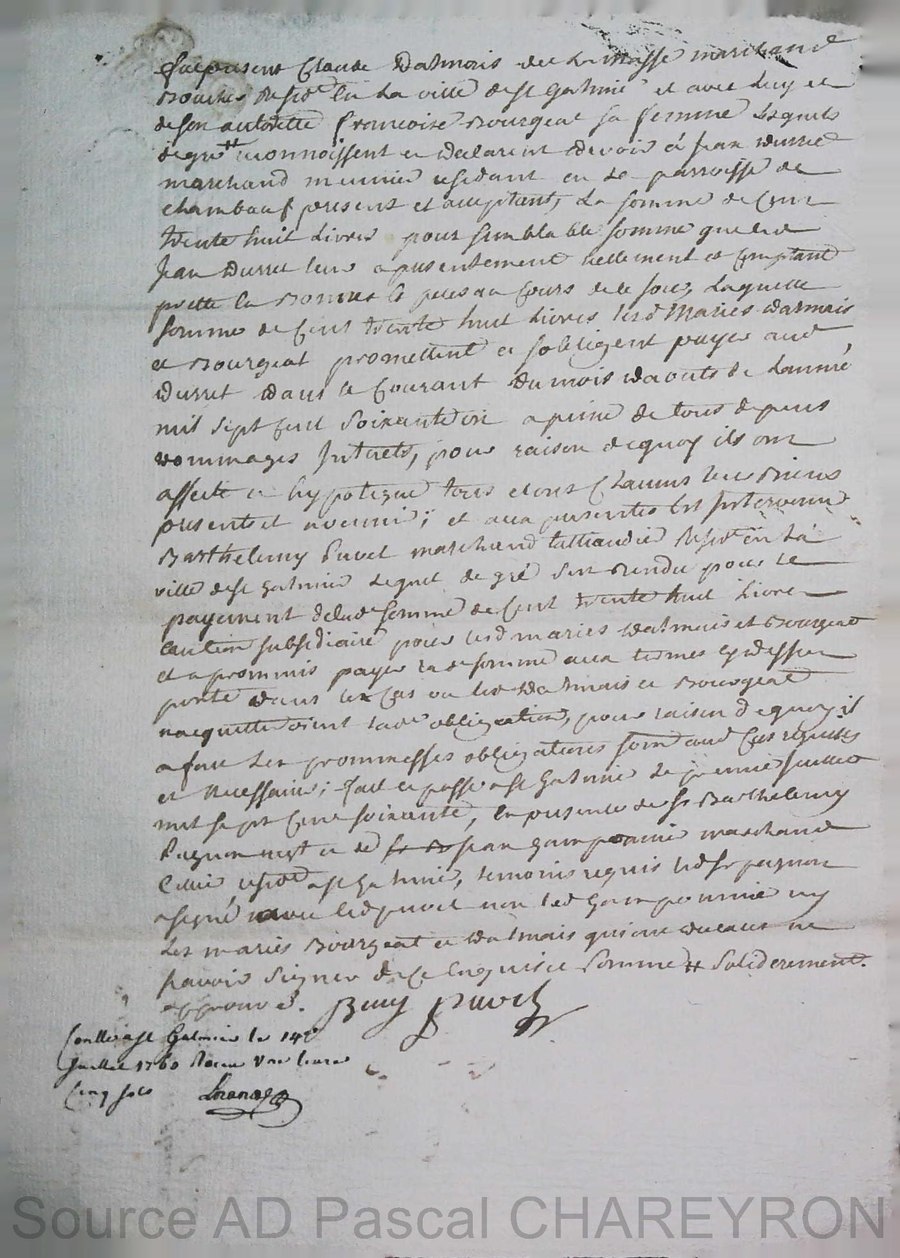 fut present Claude Dalmais de La masse marchand
Boucher Resid.t En La ville de st Galmier et avec Luy et
de son autoritté francoise Bourgeat sa femme Lesquels
de gré # reconnoissent et declarent devoir à Jean Durret
marchand meunier residant en La parroisse de
chambeuf present et aceptant, La somme de Cent
trente huit Livres pour semblable somme que led
Jean Durret leur a presentement reellement et comptant
somme de Cent trente huit Livres lesd Mariés Dalmais
et Bourgeat promettent et sobligent payer aud
Durret dans le Courant du mois daouts de Lanné
mil sept cent soixante un a peine de tous depens
dommages Interets, pour raison dequoy ils ont
affecté et hypotequé tous et uns Chacuns leurs Biens
presents et avenir; et aux presentes Est Intervenu
Barthelemy Puvel marchand taillandier Resid.t En La
ville de st Galmier Lequel de gré sest Rendu pour le
payement de lad somme de Cent trente huit Livres
Caution subsidiaire pour lesd mariés Dalmais et Bourgeat
et a prommis payer lad somme aux termes cy dessus
porté dans le Cas ou lesd Dalmais et Bourgeat
nacquitteroient lad obligation, pour raison dequoy il
a fait Les prommesses obligatoires soumd aud Cas requises
et Necessaire; fait et passé a st Galmier Le premier Juillet
mil sept Cent soixante, En presence de sr Barthelemy
Pagnon et de Jean Gampomié marchand
resid.t a st Galmier, temoins requis led sr pagnon
a signé avec led puvel non led Gampommié ny
Les mariés Bourgeat et Dalmais qui ont declaré ne
scavoir signer de ce Enquis et sommé # soliderement
approuvé. Puvel
Conllé a st Galmier le 14e
Juillet 1760 Receu Une livre
Cinq sols
Source AD Pascal CHAREYRON